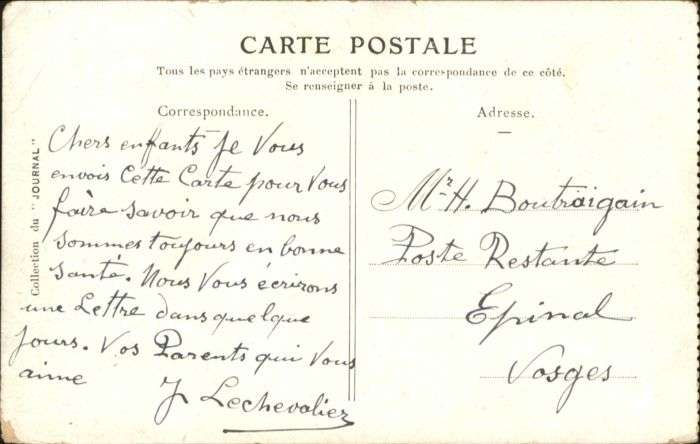 CARTE POSTALE
Tous les pays étrangers n'acceptent pas la correspondance de ce côté.
Se renseigner à la poste.
Correspondance.
Chers enfants Je Vous
envois Cette Carte pour Vous
faire savoir que nous
sommes toujours en bonne
santé. Nous Vous écrirons
une Lettre dans quelque
jours. Vos Parents qui Vous
aime
J Lechevalier
Adresse.
Mr H. Boutraigain
Poste Restante
Epinal
Vosges
Collection du "JOURNAL"